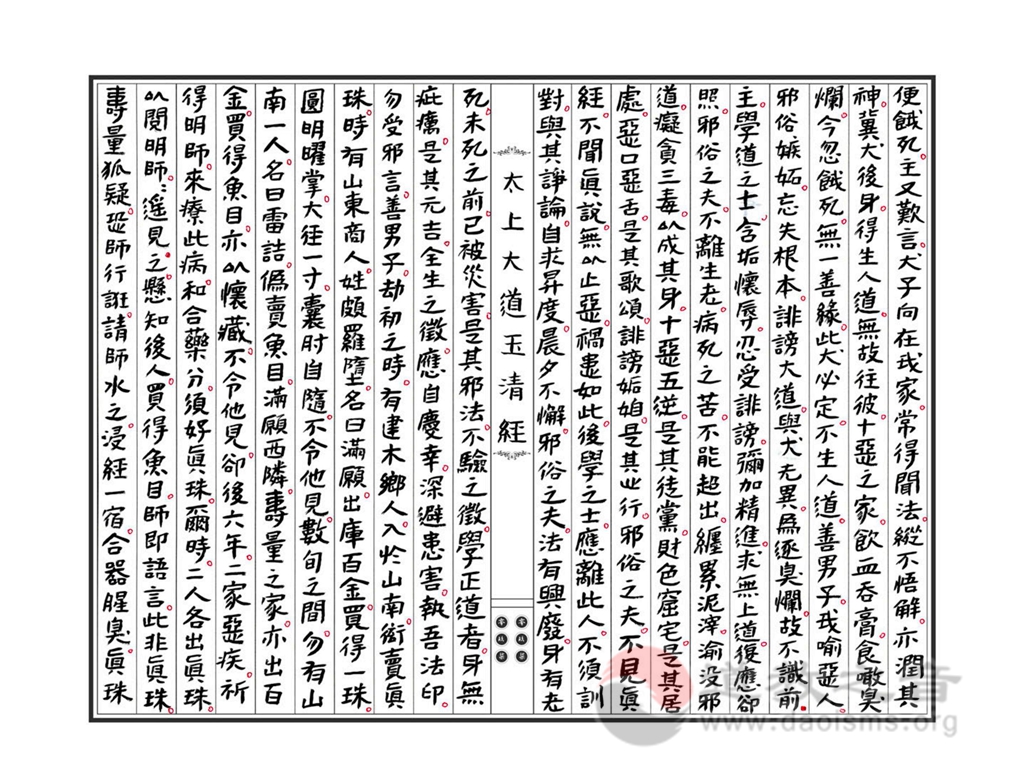 便餓死主又歎言犬子向在我家常得聞法縱不悟解亦潤其
神冀犬後身得生人道無故往彼十惡之家飲血吞膏食噉臭
爛今忽餓死無一善緣此犬必定不生人道善男子我喻惡人
邪俗嫉妬忘失根本誹謗大道與犬无異爲逐臭爛故不識前
主學道之士含垢懷辱忍受誹謗彌加精進求無上道復應卻
照邪俗之夫不離生老病死之苦不能超出纏累泥滓渝没邪
道癡貪三毒以成其身十惡五逆是其徒黨財色窟宅是其居
處惡口惡舌是其歌頌誹謗姤姐是其止行邪俗之夫不見真
經不聞真說無以止惡禍患如此後學之士應離此人不須訓
對與其諍論自求昇度晨夕不懈邪俗之夫法有興廢身有老
太上大道玉清經
死未死之前已被災害是其邪法不驗之徵學正道者身無
疵癘是其元吉全生之徵應自慶幸深避患害執吾法印
勿受邪言善男子劫初之時有建木鄉人入於山南衒賣真
珠時有山東商人姓頗羅墮名曰滿願出庫百金買得一珠
圓明曜掌大徑一寸囊肘自隨不令他見數旬之間勿有山
南一人名曰雷詰偽賣魚目滿願西隣壽量之家亦出百
金買得魚目亦以懷藏不令他見卻後六年二家惡疾祈
得明師來療此病和合藥分須好真珠爾時二人各出真珠
以閱明師〻遥見之懸知後人買得魚目師即語言此非真珠
壽量狐疑恐師行誑請師水之浸經一宿合器腥臭真珠
道教之音
www.daoisms.org